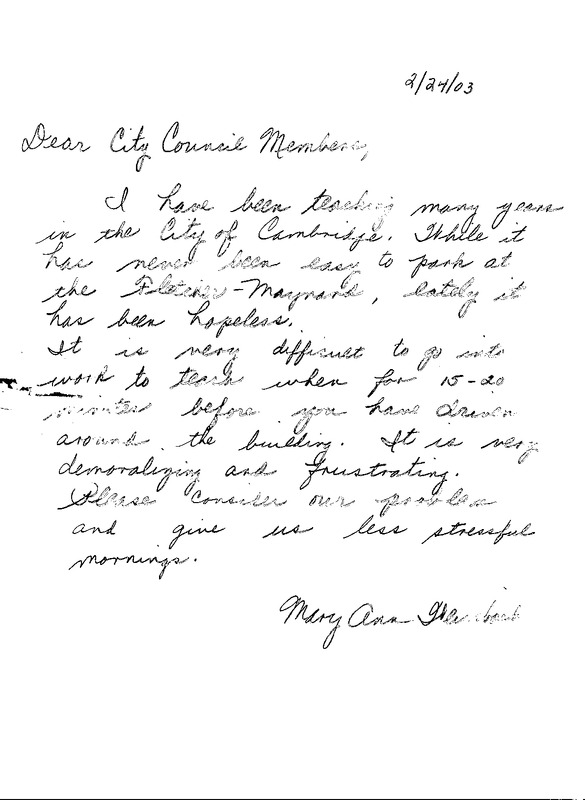 2/24/03
Dear City Council Members,
I have been teaching many years
in the City of Cambridge. While it
has never been easy to park at
the Fletcher-Maynard, lately it
has been hopeless.
It is very difficult to go into
work to teach when for 15-20
minutes before you have driven
around the building. It is very
demoralizing and frustrating.
Please consider our problem
and give us less stressful
mornings.
Mary Ann